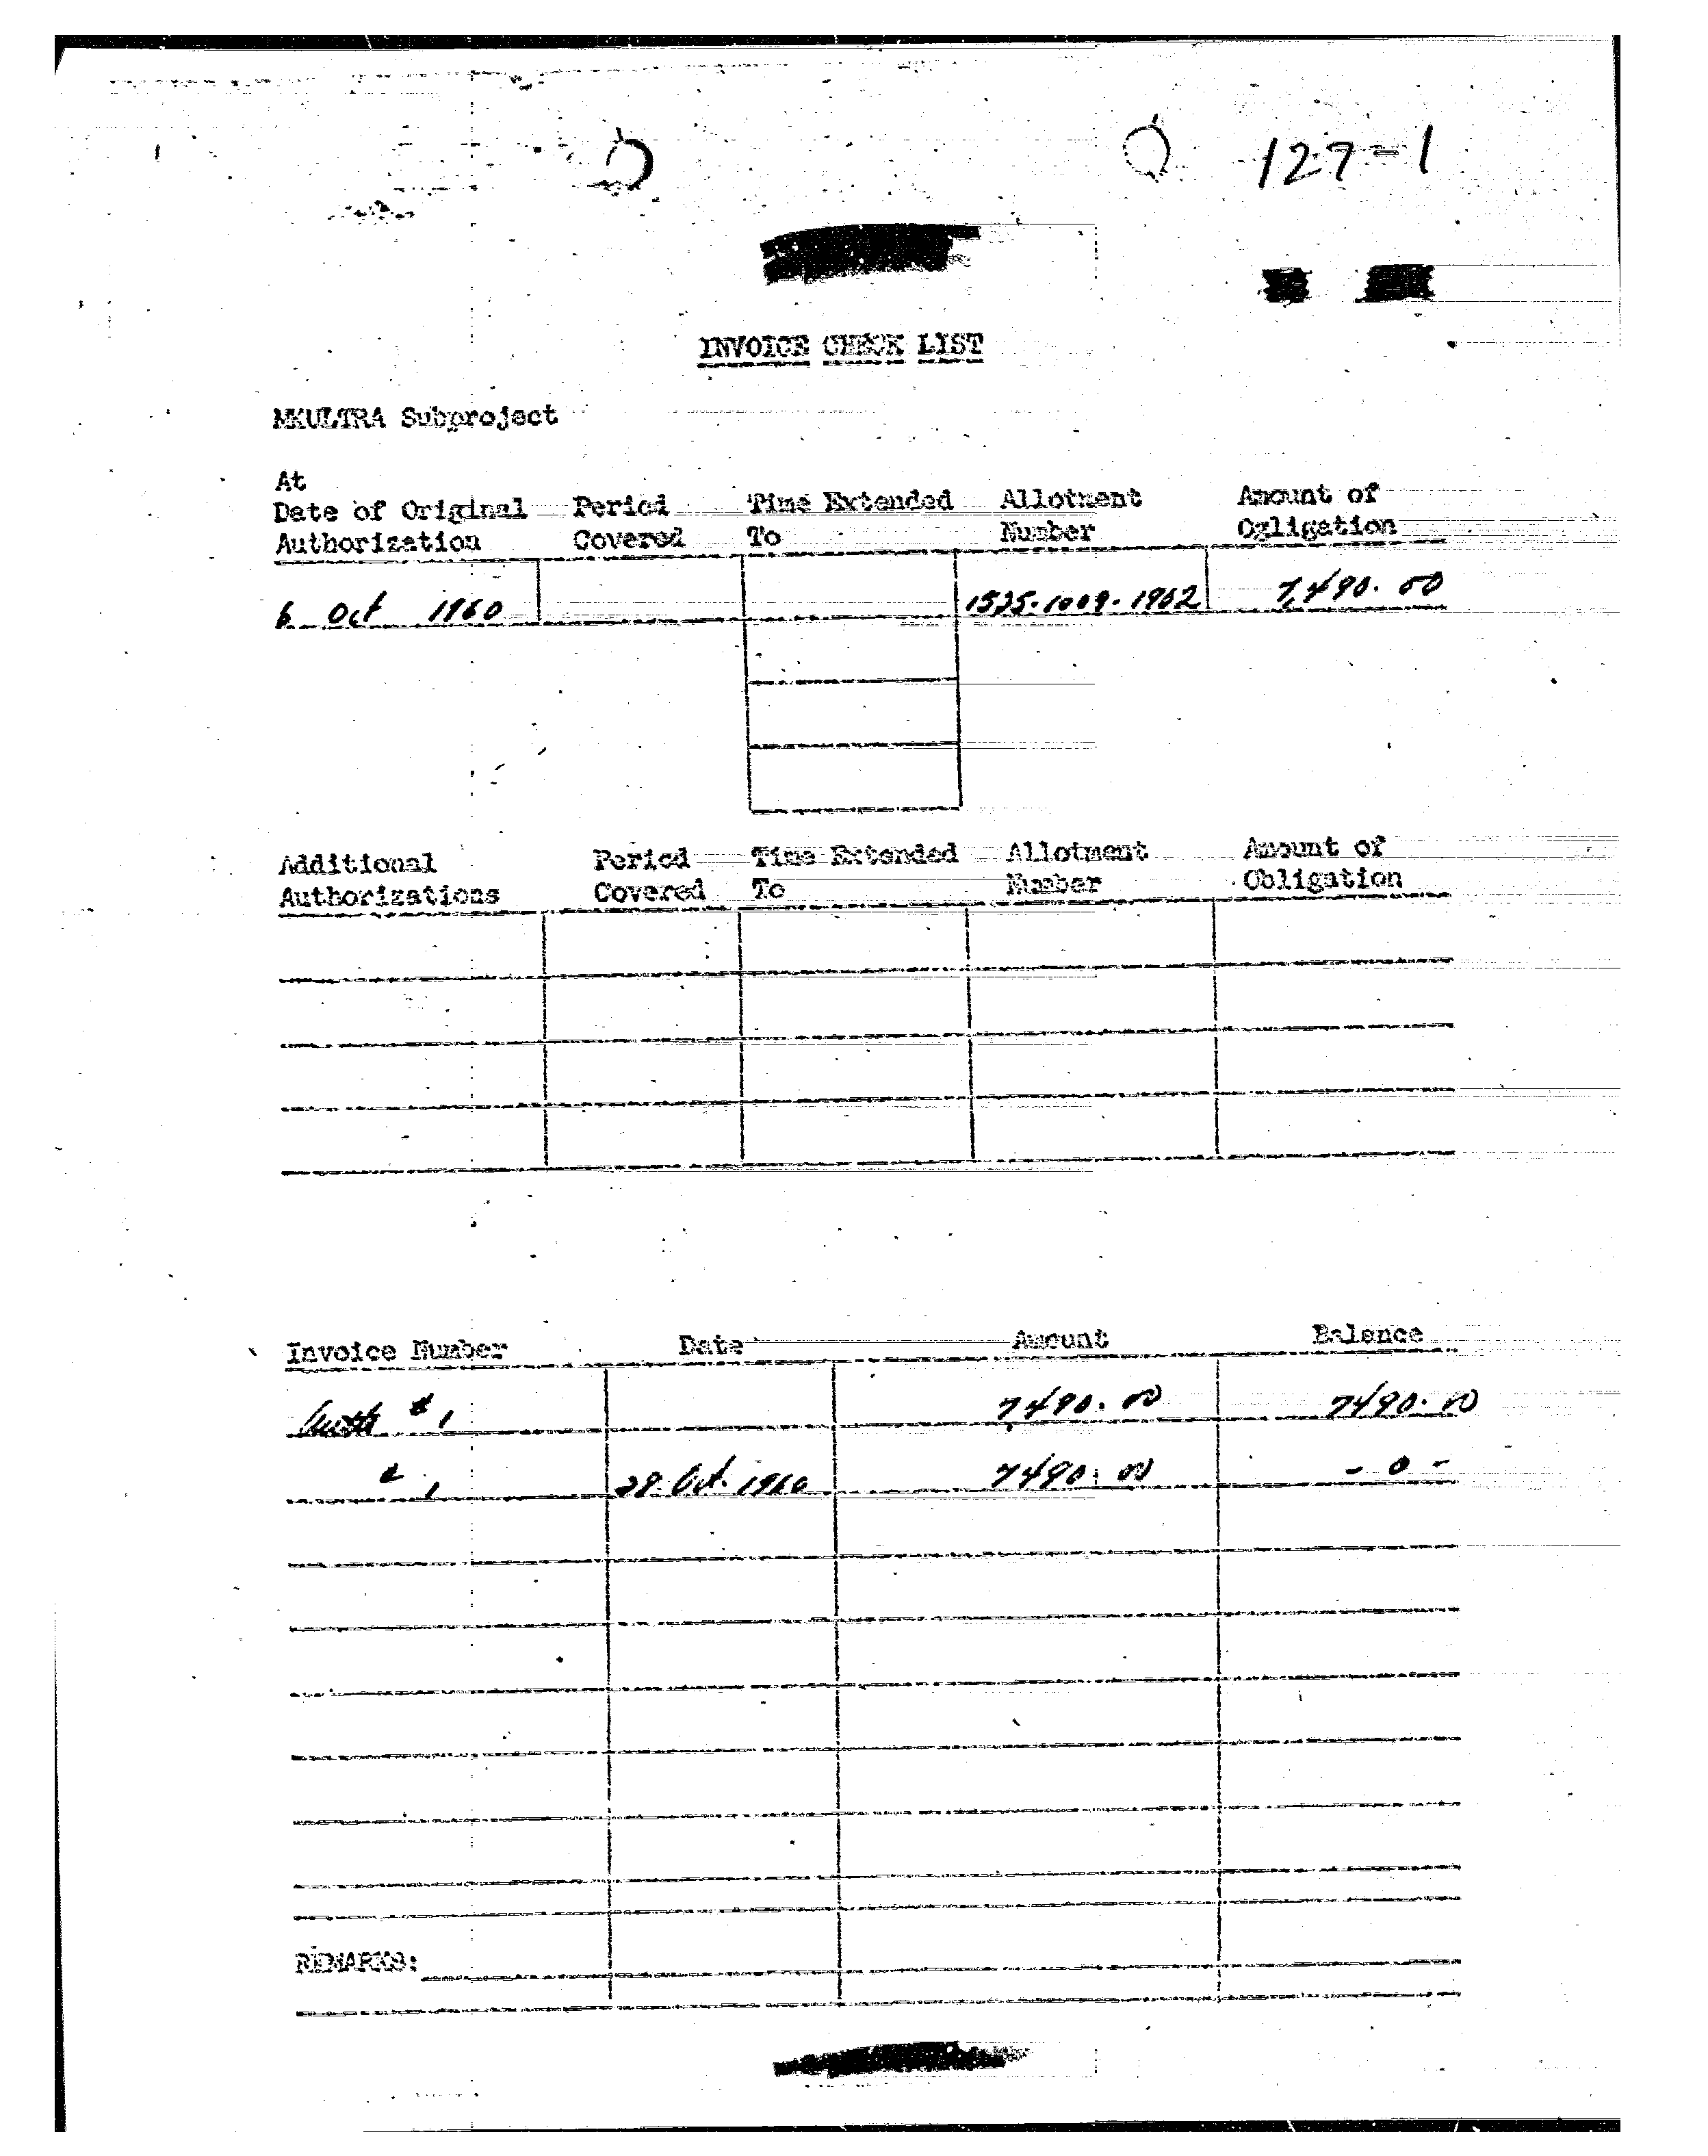 127-1
INVOICE CHECK LIST
MKULTRA Subproject
At
Date of Original Authorization Period Covered Time Extended To Allotment Number Amount of Ogligation
6 Oct 1960 1525-1009-1902 7,490.00
Additional Authorizations Period Covered Time Extended To Allotment Number Amount of Obligation
Invoice Number Date Amount Balance
Auth # 1 7490.00 7490.00
# 1 28 Oct. 1960 7490.00 - 0 -
REMARKS: